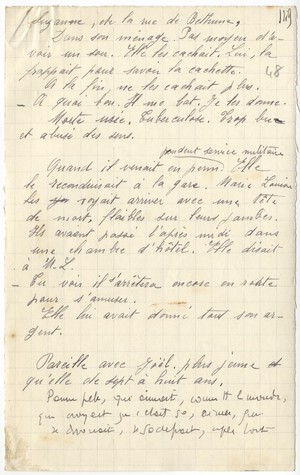 149
Suzanne, de la rue de Bethune,
Dans son ménage. Pas moyen d'a-
voir un sou. Elle les cachait. Lui, la
frappait pour savoir la cachette. 48
A la fin, ne les cachait plus.
– A quoi bon. Il me bat. Je les donne.
Morte usée. Tuberculose. Trop bu
et abusé des sens.
pendant service militaire
Quand il venait en perm Elle
le reconduisait à la gare. Marie Louise
les voyait arriver avec une tête
de mort, faibles sur leurs jambes.
Ils avaient passé l'après midi dans
une chambre d'hôtel. Elle disait
à M.L.
– Tu vois il s'arrêtera encore en route
pour s'amuser.
Elle lui avait donné tout son ar-
gent.
Pareille avec Joël. plus jeune
qu'elle de sept à huit ans.
Pauvre
qui croyait